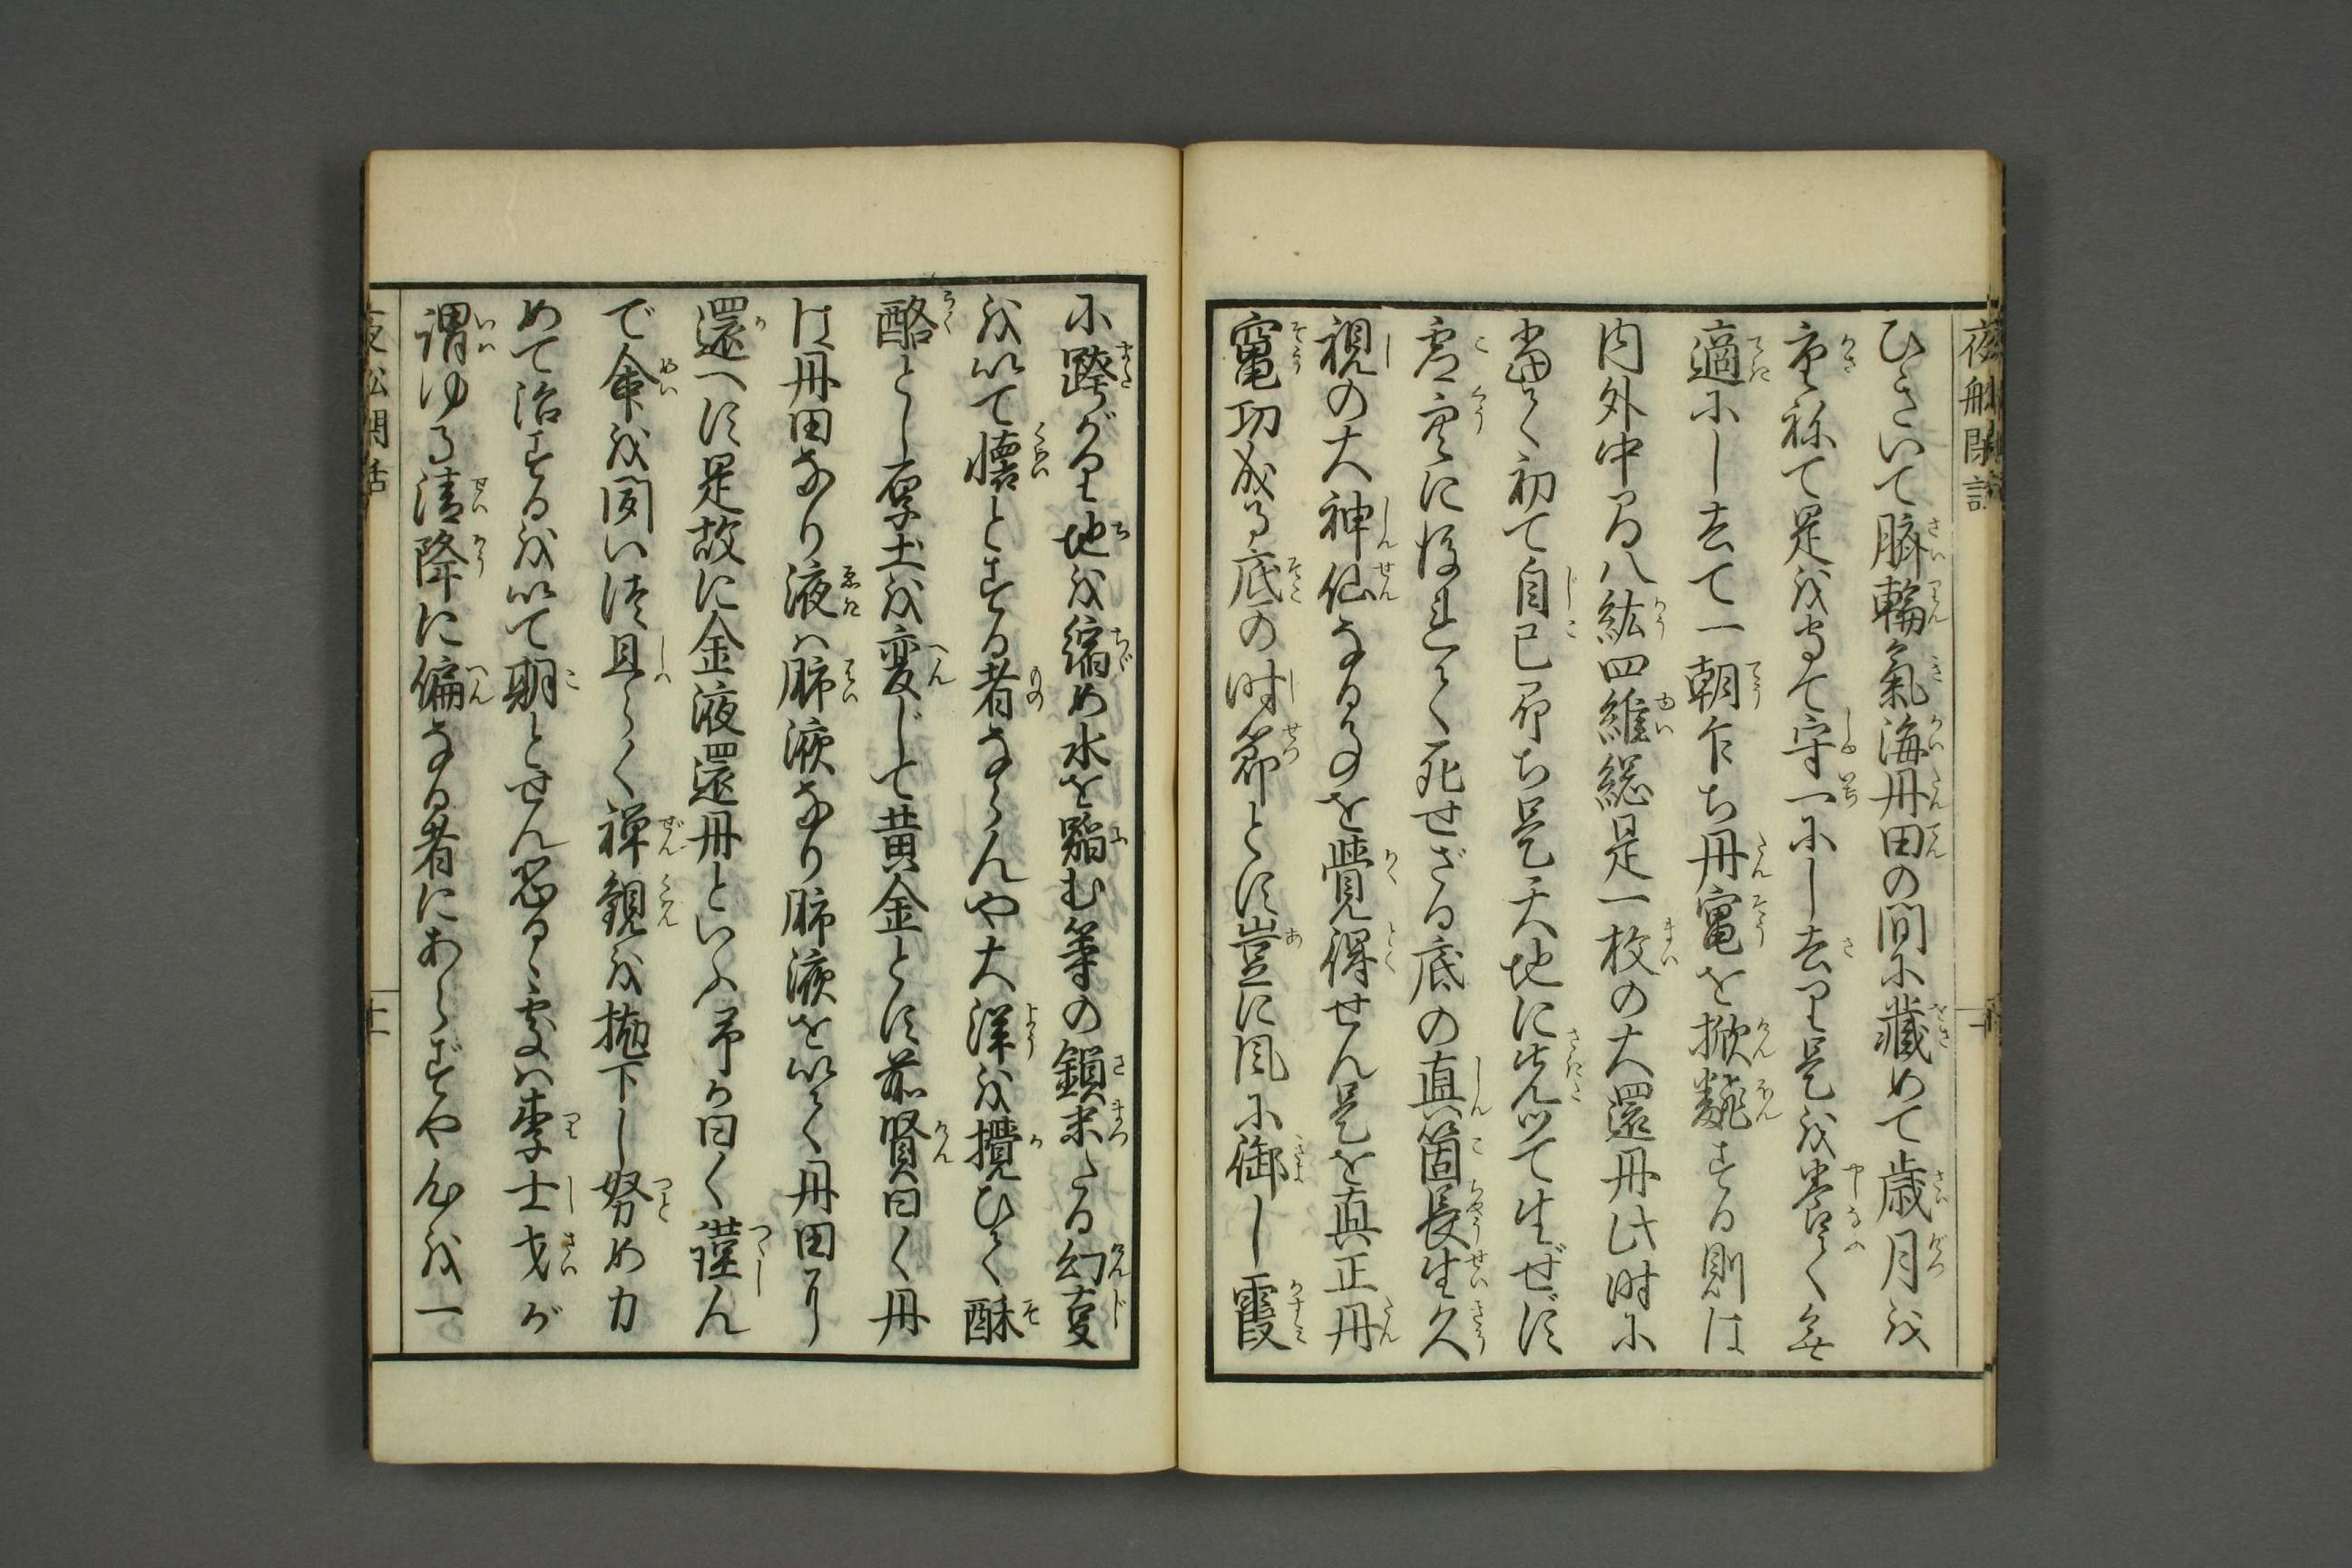 夜船閑話
ひきいて臍輪氣海丹田の間に藏めて歳月を
重ねて是を守て守一にし去り是を養て無
適にし去て一朝乍ち丹竃を掀飜する則は
内外中間八紘四維総是一枚の大還丹此時に
當て初て自己即ち是天地に先つて生ぜず
虚空に後れて死せざる底の真箇長生久
視の大神仙なる事を覺得せん是を真正丹
竃功成る底の时節とす豈に風に御し霞
に跨がり地を縮め水を踏む等の鎖末たる幻事
を以て懐とする者ならんや大洋を攪ひて酥
酪とし厚土を変じて黄金とす前賢曰く丹
は丹田なり液は肺液なり肺液を以て丹田に
還へす是故に金液還丹といふ予が曰く謹ん
で命を聞いつ且らく禅観を抛下し努め力
めて治するを以て期とせん恐るゝ處は李士才が
謂ゆる清降に偏なる者にあらずや心を一
夜船閑話
十一